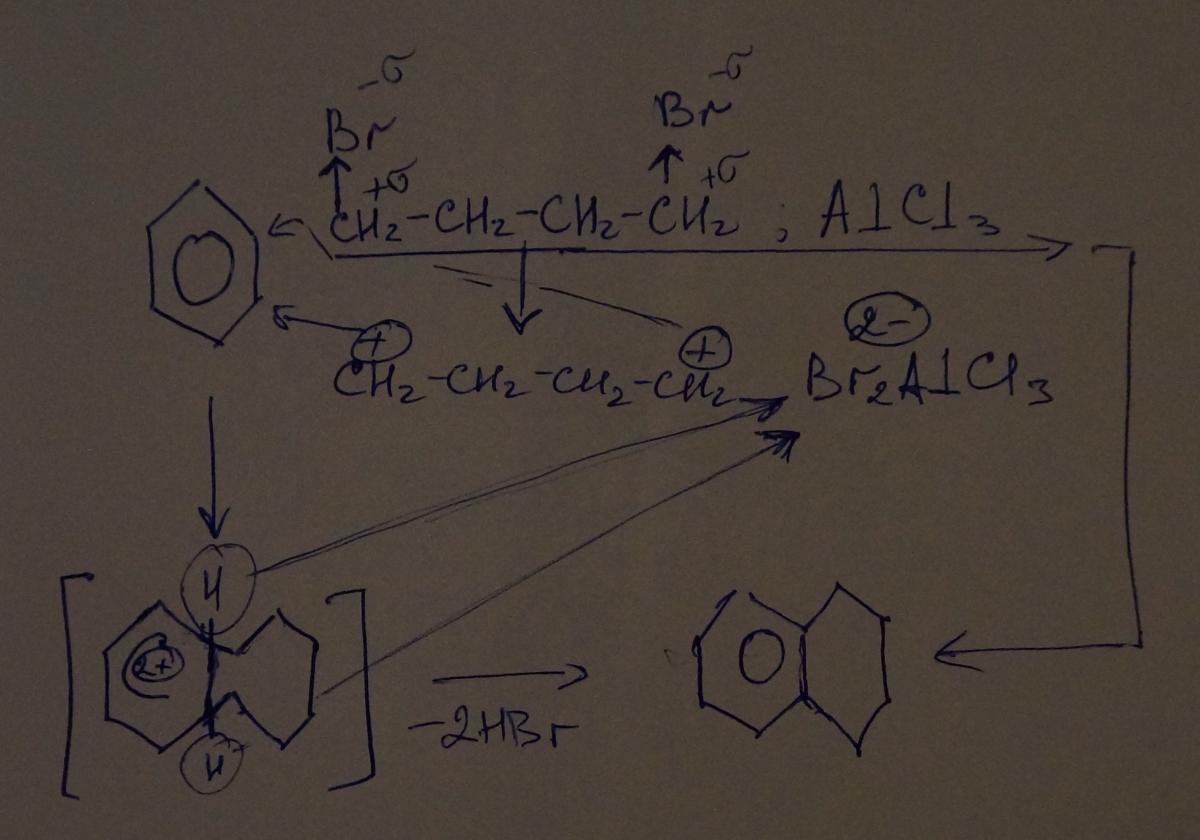 -σ -σ
Br Br
+σ +σ
CH₂-CH₂-CH₂-CH₂ ; AlCl₃
+ + 2-
CH₂-CH₂-CH₂-CH₂ Br₂AlCl₃
H
2+
-2HBr
H